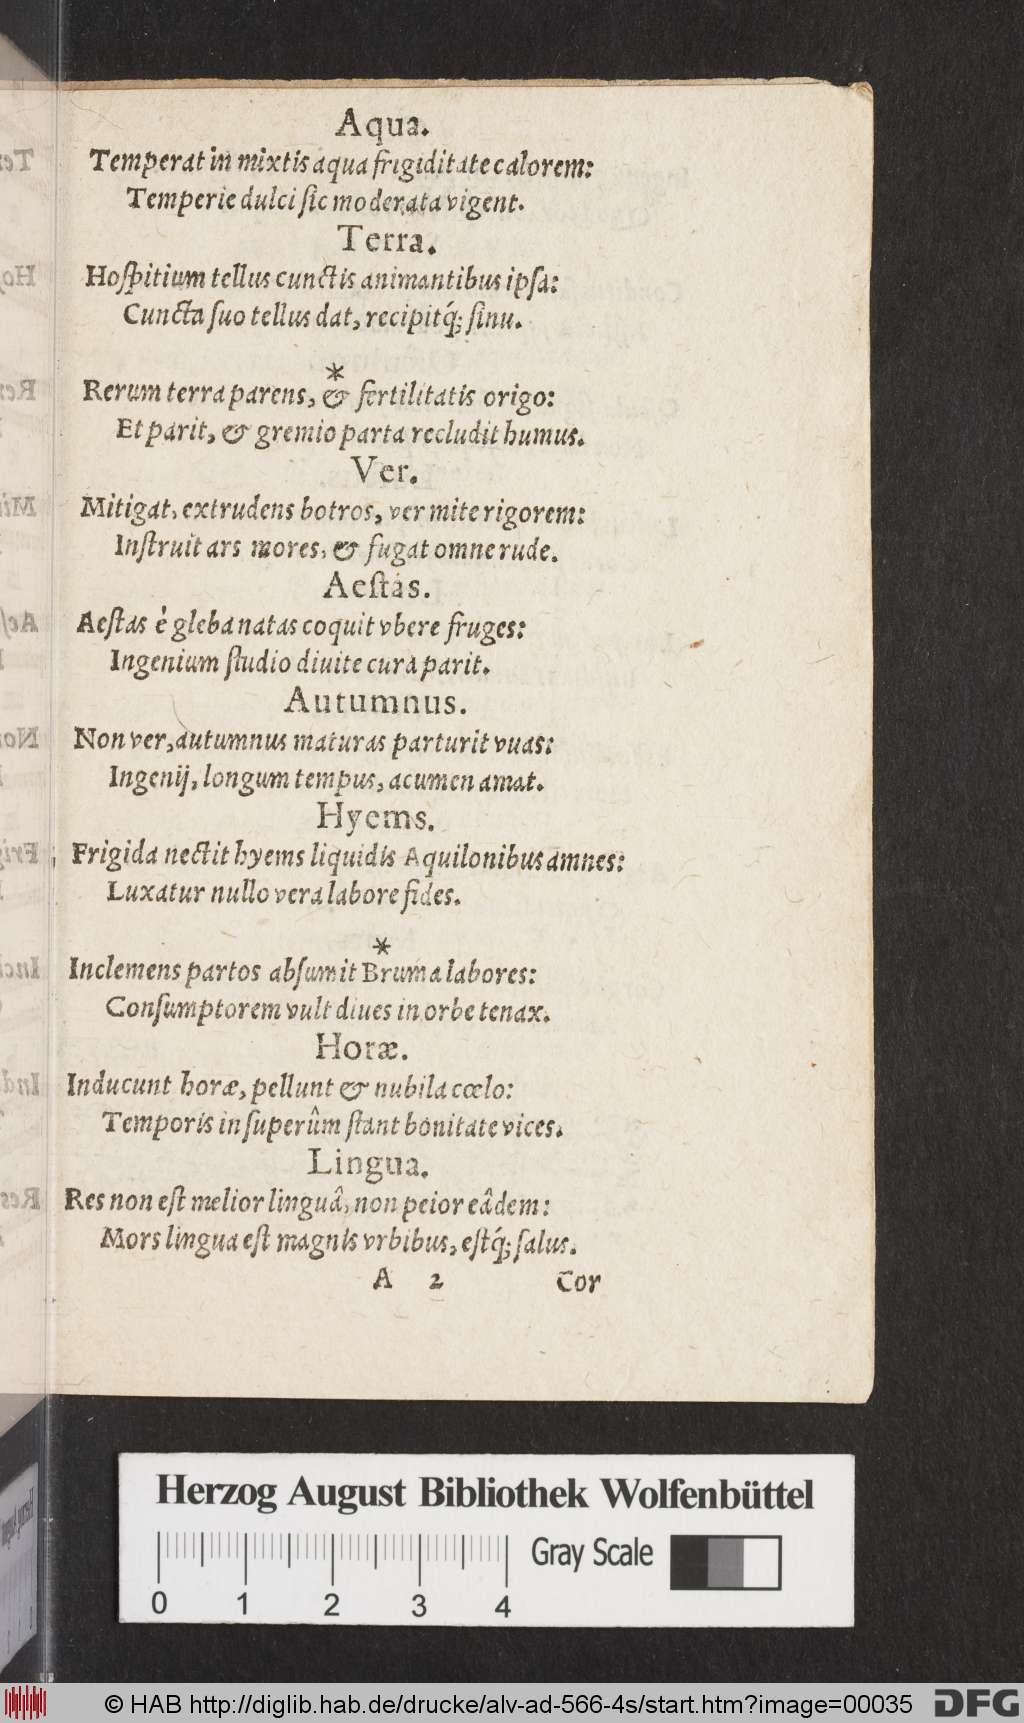 Aqua.
Temperat in mixtis aqua frigiditate calorem:
Temperie dulci ſic moderata vigent.
Terra.
Hoſpitium tellus cunctis animantibus ipſa:
Cuncta ſuo tellus dat, recipitq́; ſinu.
*
Rerum terra parens, & fertilitatis origo:
Et parit, & gremio parta recludit humus.
Ver.
Mitigat, extrudens botros, ver mite rigorem:
Inſtruit ars mores, & fugat omne rude.
Aeſtas.
Aeſtas è gleba natas coquit vbere fruges:
Ingenium ſtudio diuite cura parit.
Autumnus.
Non ver, autumnus maturas parturit vuas:
Ingenij, longum tempus, acumen amat.
Hyems.
Frigida nectit hyems liquidis Aquilonibus amnes:
Luxatur nullo vera labore fides.
*
Inclemens partos abſumit Bruma labores:
Conſumptorem vult diues in orbe tenax.
Horæ.
Inducunt horæ, pellunt & nubila cœlo:
Temporis in ſuperûm ſtant bonitate vices.
Lingua.
Res non eſt melior linguâ, non peior eâdem:
Mors lingua eſt magnis vrbibus, eſtq́; ſalus.
A 2 Cor
Herzog August Bibliothek Wolfenbüttel
Gray Scale
0 1 2 3 4
© HAB http://diglib.hab.de/drucke/alv-ad-566-4s/start.htm?image=00035 DFG